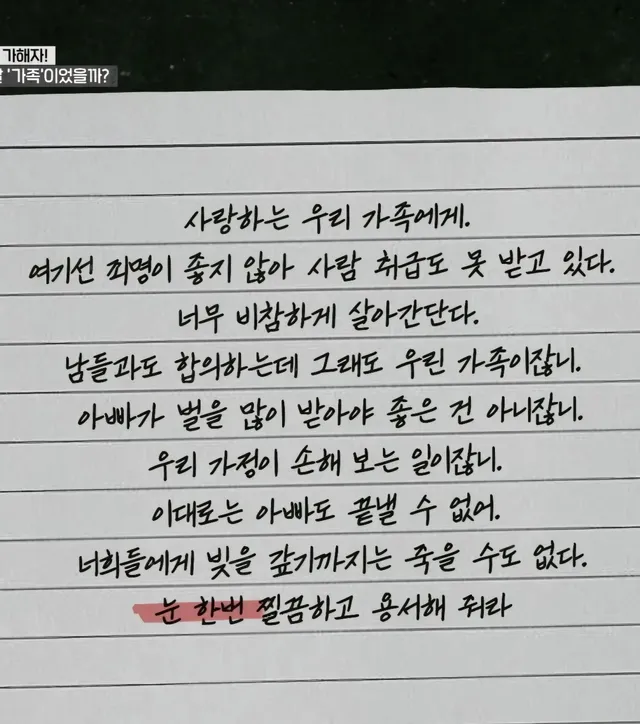 가해자!
'가족'이었을까?
사랑하는 우리 가족에게.
여기선 죄명이 좋지 않아 사람 취급도 못 받고 있다.
너무 비참하게 살아간단다.
남들과도 합의하는데 그래도 우린 가족이잖니.
아빠가 벌을 많이 받아야 좋은 건 아니잖니.
우리 가정이 손해 보는 일이잖니.
이대로는 아빠도 끝낼 수 없어.
너희들에게 빚을 갚기까지는 죽을 수도 없다.
눈 한번 찔끔하고 용서해 줘라